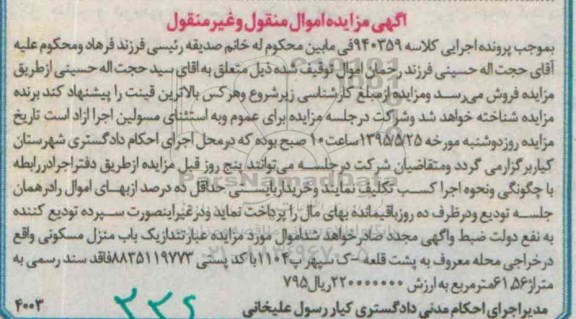 آگهی مزایده اموال منقول و غیر منقول
بموجب پرونده اجرایی کلاسه ۹۴۰۳۵۹ فی مابین محکوم له خانم صدیقه رئیسی فرزند فرهاد ومحکوم علیه
آقای حجت اله حسینی فرزند رحمان اموال توقیف شده ذیل متعلق به اقای سید حجت اله حسینی ازطریق
مزایده فروش می رسد ومزایده ازمبلغ کارشناسی زیرشروع وهرکس بالاترین قیمت را پیشنهاد کند برنده
مزایده شناخته خواهد شد وشرکت درجلسه مزایده برای عموم وبه استثنای مسولین اجرا ازاد است تاریخ
مزایده روزدوشنبه مورخه ۱۳۹۵/۵/۲۵ ساعت ۱۰ صبح بوده که درمحل اجرای احکام دادگستری شهرستان
کیاربرگزارمی گردد ومتقاضیان شرکت درجلسه می توانند پنج روز قبل مزایده ازطریق دفتراجرادررابطه
با چگونگی ونحوه اجرا کسب تکلیف نمایند وخریداربایستی حداقل ده درصد ازبهای اموال رادرهمان
جلسه تودیع ودرظرف ده روزباقیمانده بهای مال را پرداخت نماید ودرغیراینصورت سپرده تودیع کننده
به نفع دولت ضبط واگهی مجدد صادرخواهد شداموال مورد مزایده عبارتندازیک باب منزل مسکونی واقع
درخراجی محله معروف به پشت قلعه -ک سپهر پ۱۱۰۴ با کد پستی ۸۸۳۵۱۱۹۷۷۳فاقد سند رسمی به
متراژ۶۱,۵۶مترمربع به ارزش ۲۲۰۰۰۰۰۰۰ریال۷۹۵
مدیراجرای احکام مدنی دادگستری کیار رسول علیخانی
۴۰۰۳
۳۳۶